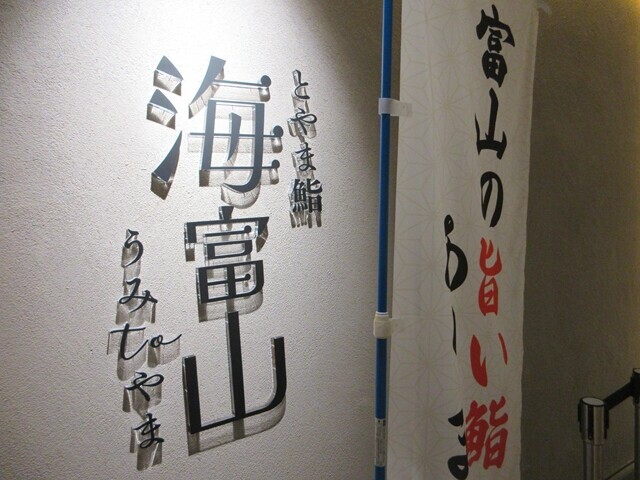 とやま鮨
海富山
うみとやま
富山の旨い鮨